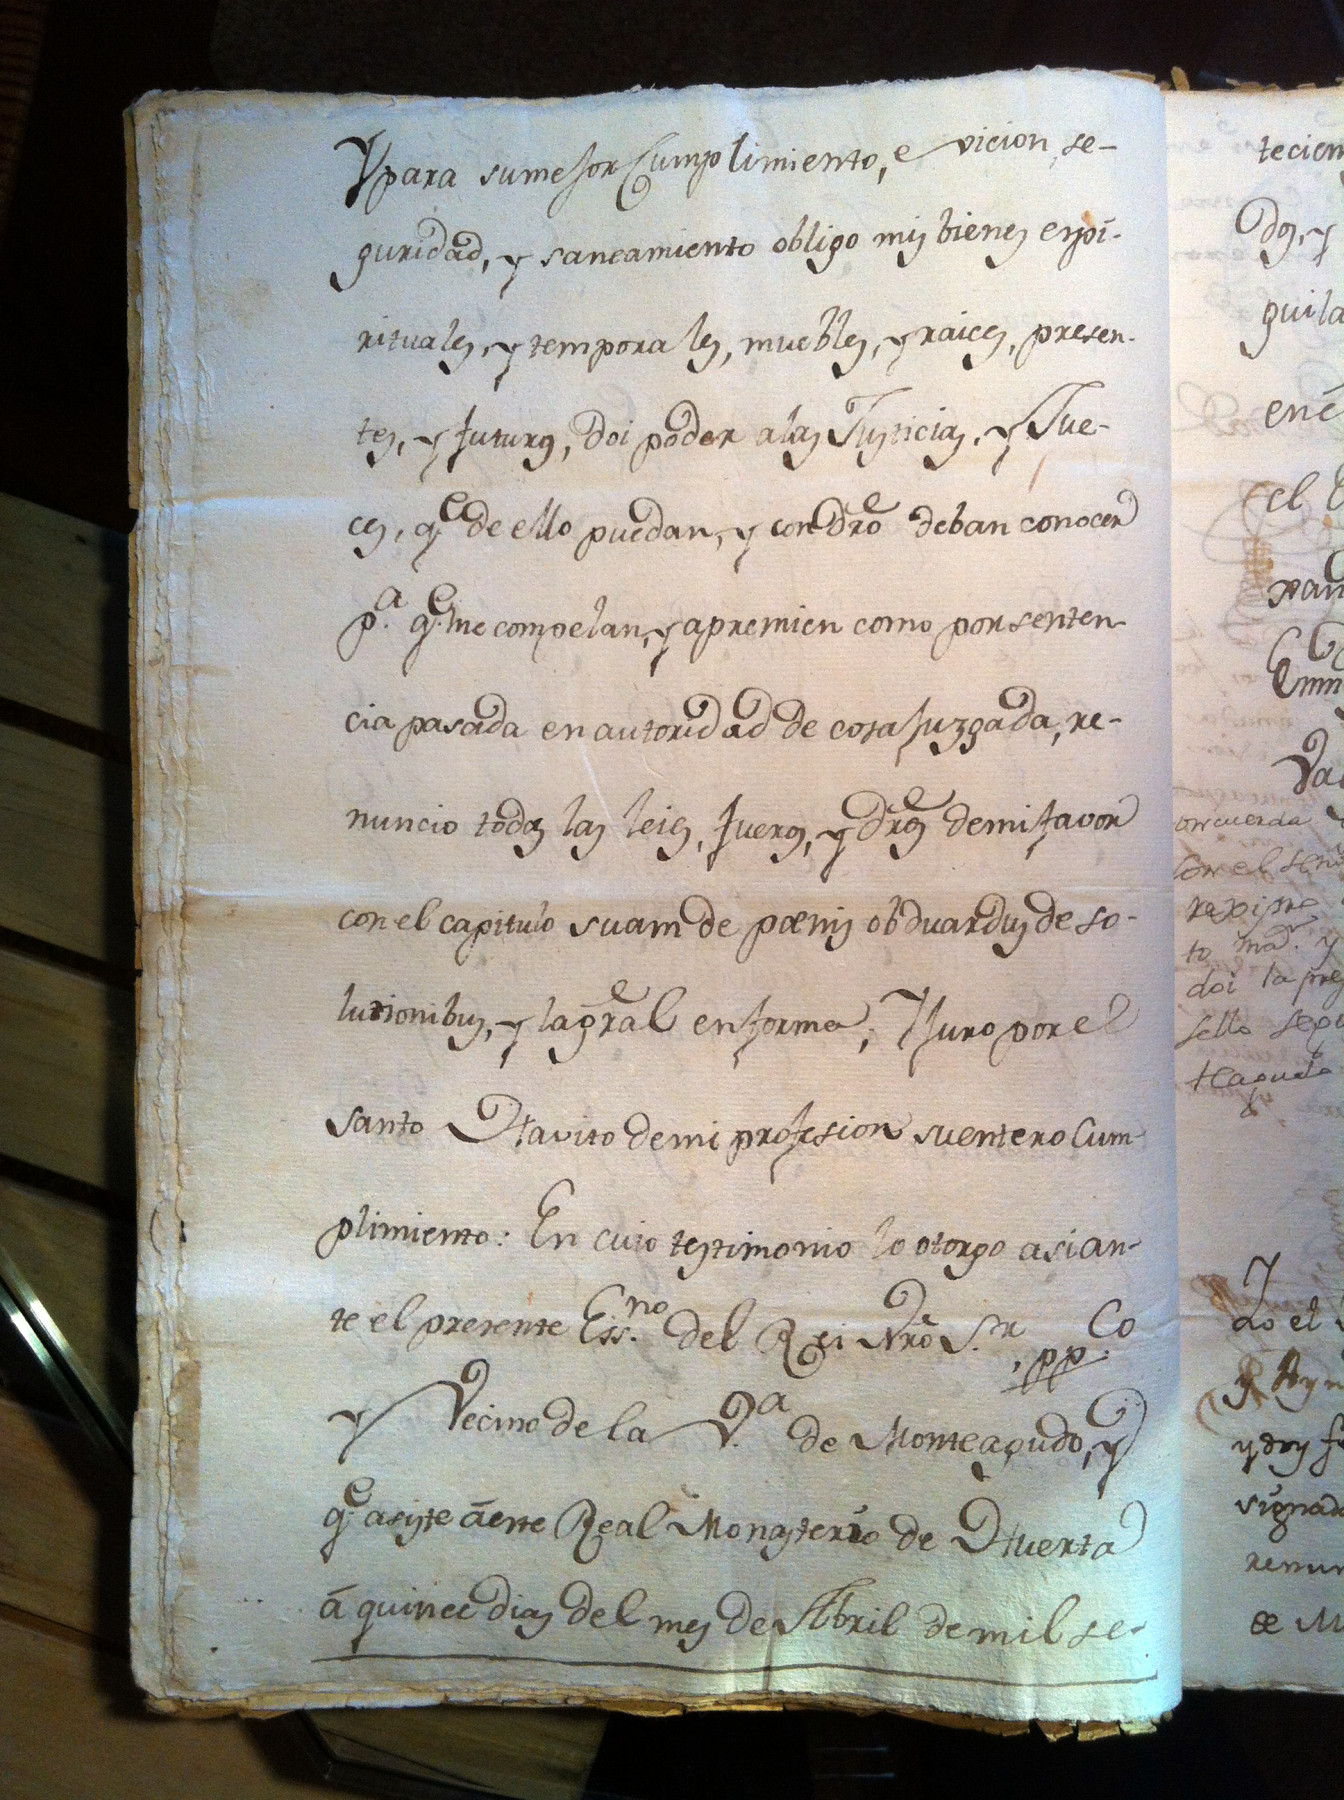 Y para su mejor Cumplimiento, e viccion, se-
guridad, y saneamiento obligo mis bienes espi-
rituales, y temporales, muebles, y raices, presen-
tes, y futuros, doi poder a las Justicias, y Jue-
ces, q.e de ello puedan, y con dro deban conocer
p.a q.e me compelan, y apremien como por senten-
cia pasada en autoridad de cosa juzgada, re-
nuncio todas las leies, fueros, y dros de mi favor
con el capitulo suam de pœnis obduardus de so-
lutionibus, y la gral en forma; Y juro por el
santo Havito de mi profesion su entero Cum-
plimiento: En cuio testimonio lo otorgo asi an-
te el presente Ess.no del Rei Nro S.or, pp.co
y Vecino de la V.a de Monteagudo, y
q.e asiste á este Real Monasterio de Huerta
á quince dias del mes de Abril de mil se-
tecien
dos, y
guila
el
oncuerda
con el
to
doi la
sello
do el
y doy
signad
renun
de M